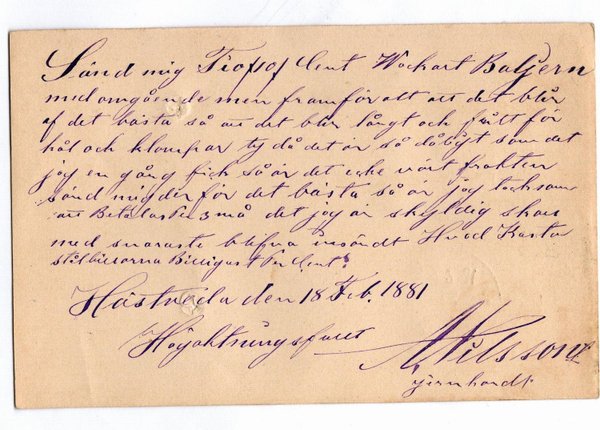 Sänd mig Tiofsof Cent Wackert Baljern
med omgående men framför alt att det blir
af det bästa så att det blir långt och fritt för
hål och klumpar ty då det är så dåligt som det
jag en gång fick så är det icke värt frakten
sänd mig der för det bästa så är jag tacksam
att Betala 3 må det jag är skyldig skall
med snaraste blifva insändt Hvad Kosta
Billigast Per Cent?
Hästveda den 18 Feb. 1881
Högaktningsfullt
A Nilsson
jernhandl